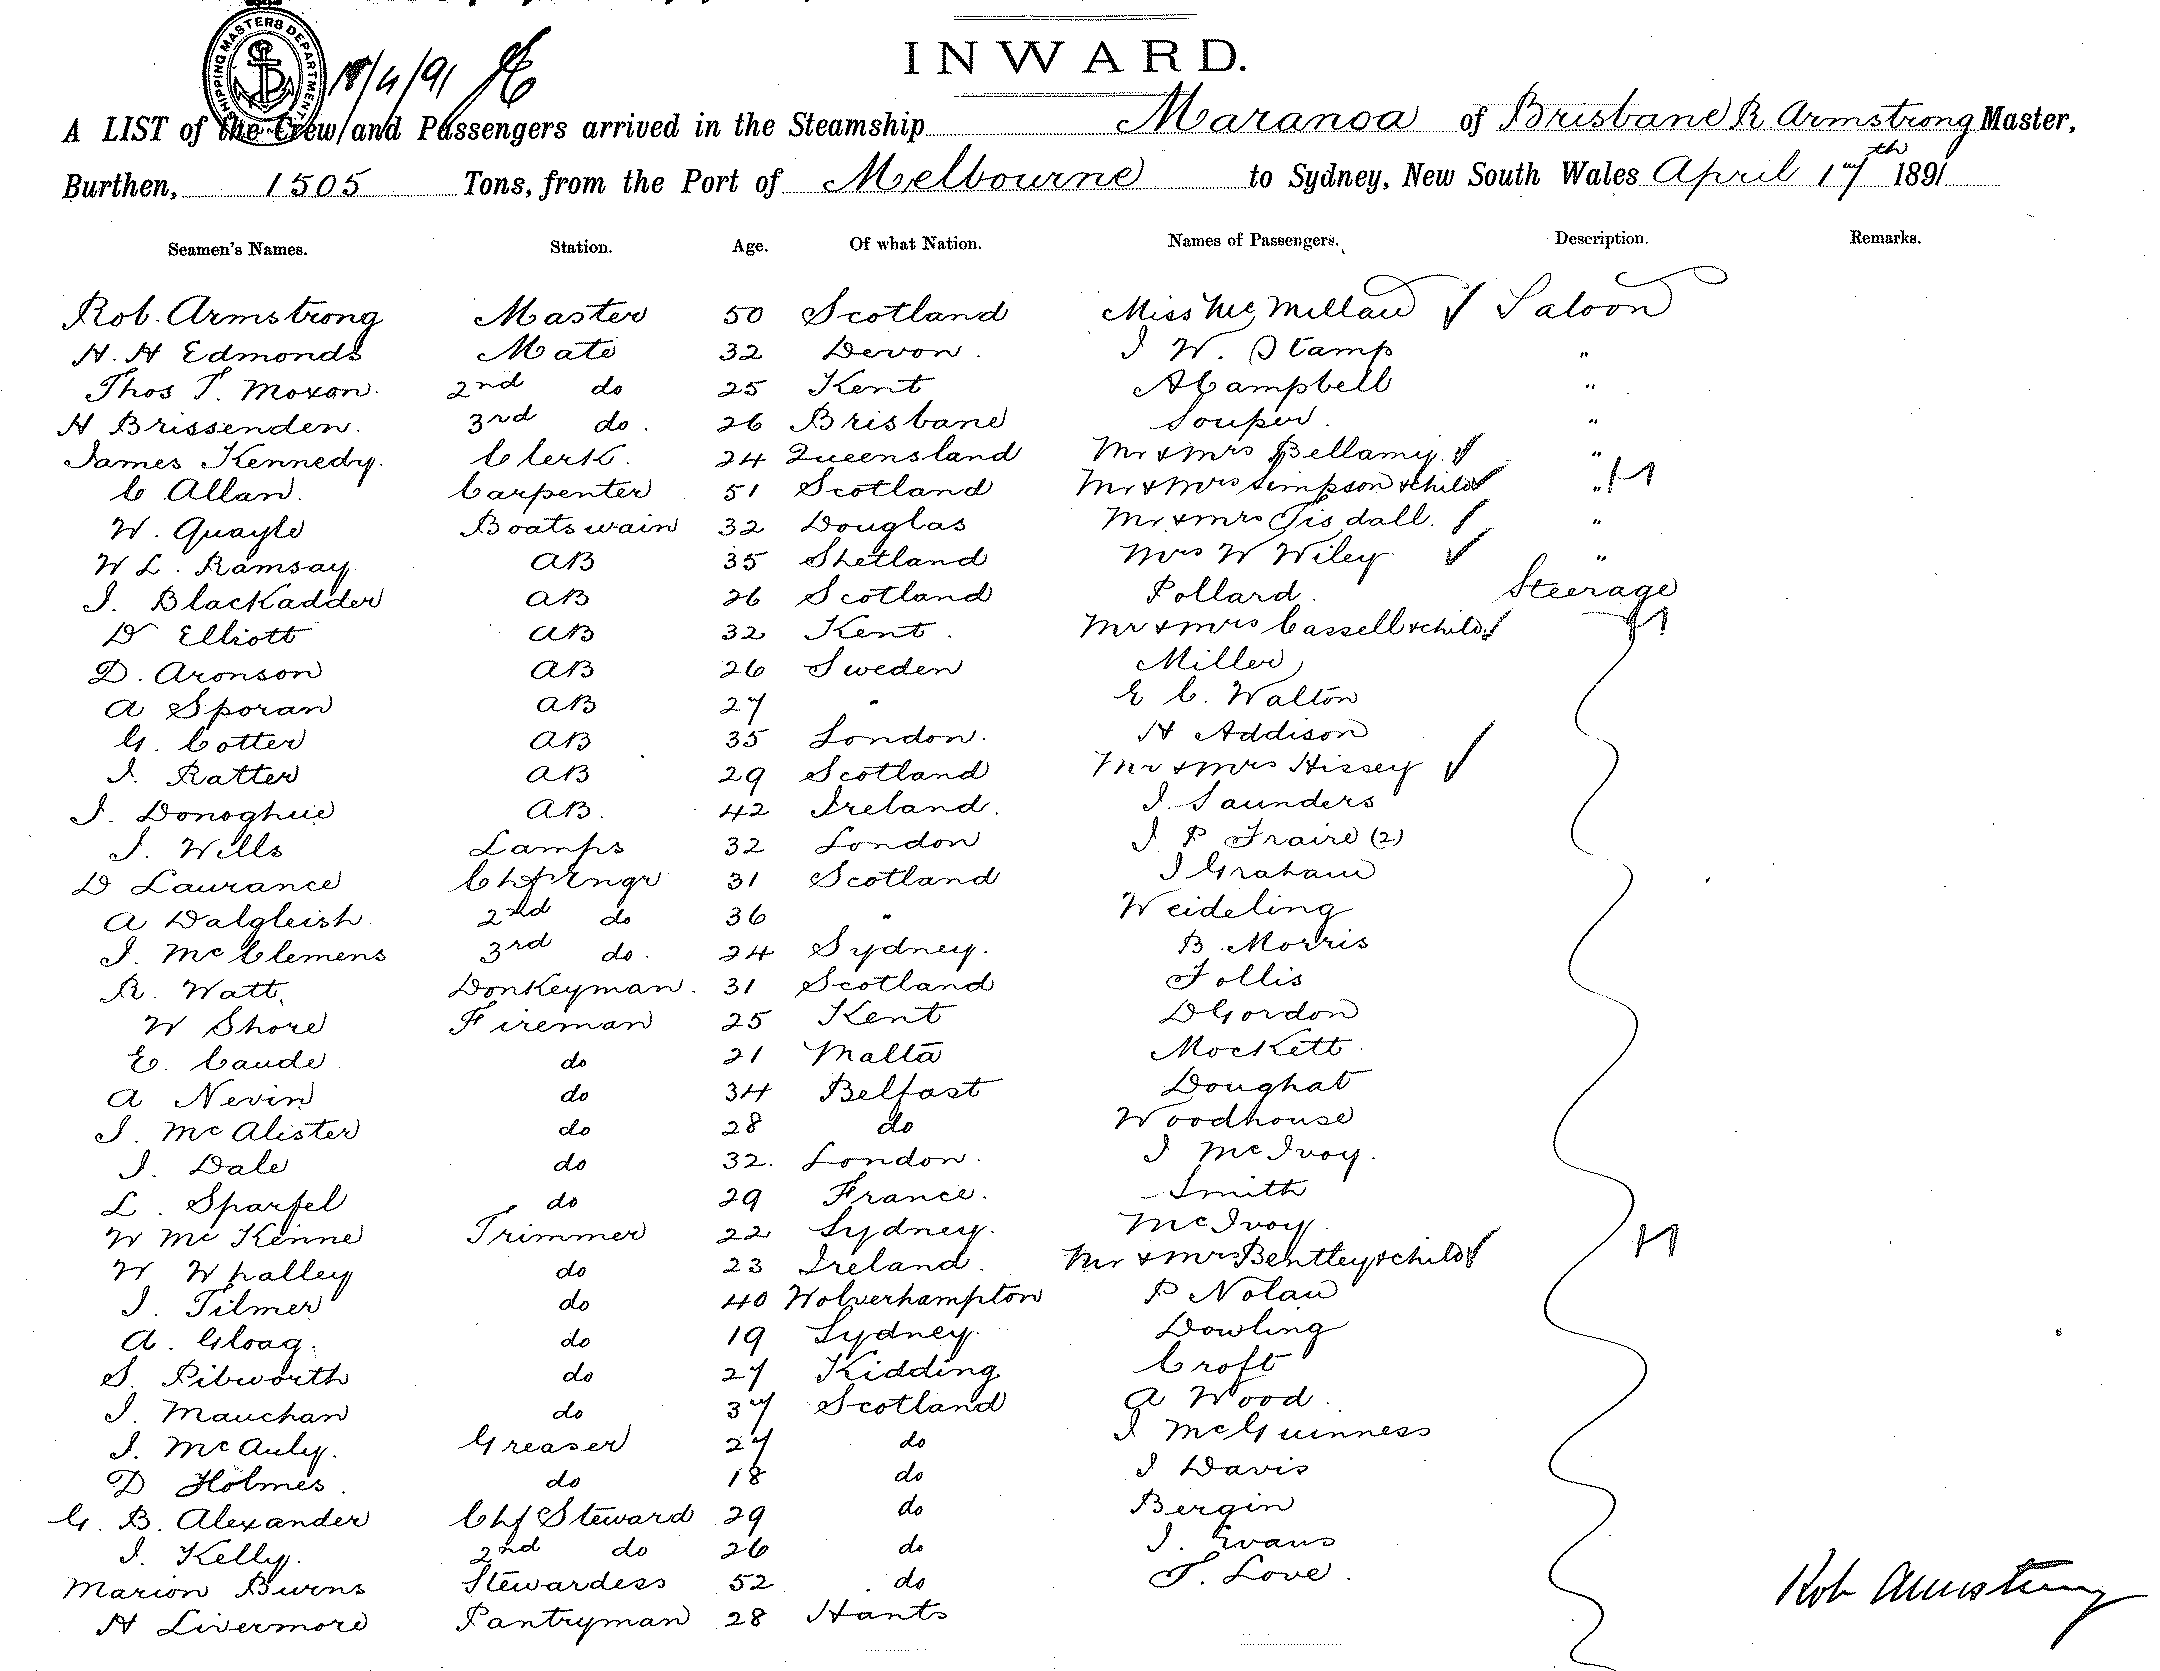 SHIPPING MASTERS DEPARTMENT
18/4/91
INWARD.
A LIST of the Crew and Passengers arrived in the Steamship Maranoa of Brisbane R. Armstrong Master,
Burthen, 1505 Tons, from the Port of Melbourne to Sydney, New South Wales April 17th 1891
Seamen's Names. Station. Age. Of what Nation. Names of Passengers. Description. Remarks.
Rob. Armstrong Master 50 Scotland Miss McMillan Saloon
H. H Edmonds Mate 32 Devon. J W. Stamp "
Thos T. Moxon. 2nd do 25 Kent A Campbell "
H Brissenden. 3rd do. 26 Brisbane Souper. "
James Kennedy. Clerk. 24 Queensland Mr & Mrs Bellamy. "
C Allan. Carpenter 51 Scotland Mr & Mrs Simpson & child "
W. Quayle Boatswain 32 Douglas Mr & Mrs Tisdall. "
W L. Ramsay AB 35 Shetland Mrs W Wiley "
J. Blackadder AB 26 Scotland Pollard. Steerage
D Elliott AB 32 Kent. Mr & Mrs Cassell & child
D. Aronson AB 26 Sweden Miller
A Sporan AB 27 " E C. Walton
G. Cotter AB 35 London. H Addison
J. Ratter AB 29 Scotland Mr & Mrs Hissey
J. Donoghue AB. 42 Ireland. J. Saunders
J. Wills Lamps 32 London J P Fraire (2)
D Laurance Chf Engr 31 Scotland J Graham
A Dalgleish 2nd do 36 " Weideling
J. McClemens 3rd do. 24 Sydney. B. Morris
R. Watt. Donkeyman. 31 Scotland Follis
W Shore Fireman 25 Kent D Gordon
E. Caude do 21 Malta Mockett
A Nevin do 34 Belfast Doughat
J. McAlister do 28 do Woodhouse
J. Dale do 32. London. J McIvoy.
L. Sparfel do 29 France. Smith
W McKenne Trimmer 22 Sydney. McIvoy.
W Whalley do 23 Ireland. Mr & Mrs Bentley & child
J. Tilmer do 40 Wolverhampton P Nolan
A. Gloag. do 19 Sydney. Dowling
S. Pibworth do 27 Kidding Croft
J. Mauchan do 37 Scotland A Wood.
J. McAuly. Greaser 27 do J McGuinness
D Holmes. do 18 do J Davis
G. B. Alexander Chf Steward 29 do Bergin
J. Kelly. 2nd do 26 do J. Evans
Marion Burns Stewardess 52 do T. Love.
H Livermore Pantryman 28 Hants
Rob Armstrong